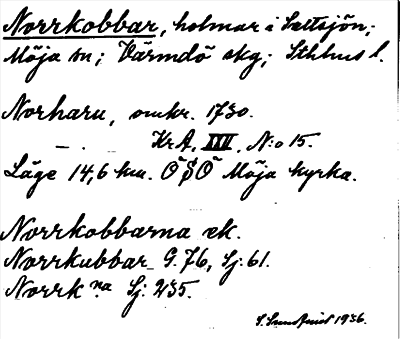 Norrkobbar, holmar i Saltsjön;
Möja sn; Värmdö skg; Sthlms l.
Norharu, omkr. 1730.
— . KrA. XXV. N:o 15.
Läge 14,6 km. OSO Möja kyrka.
Norrkobbarna ek.
Norrkubbar G. 76, Sj: 61.
Norrk na Sj: 235.
1936.